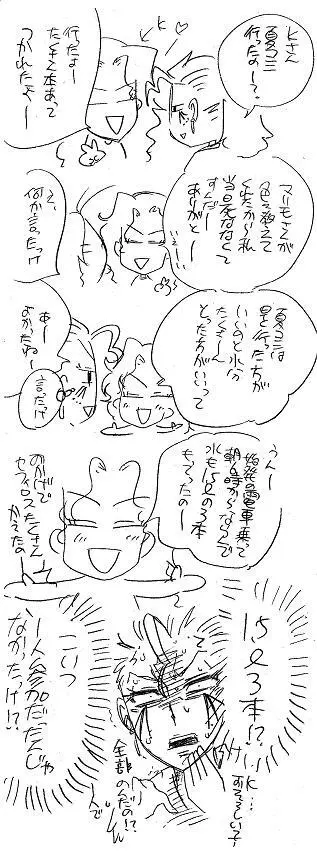 Kさん
夏コミ
行ったの〜?
K
行たよー
たくさん本あって
つかれたよー
マリモさんが
色々教えて
くれたから私
当日死ななくて
すんだー
ありがとー
え、
何か言たっけ
夏コミは
早く行った方が
いいのと水分
たくさーん
とった方がいいって
あー
よかったねー
言たっけ
うんー
始発の電車乗って
朝6時からならんで
水も1.5ℓの3本
もってったのー
おかげで
セフィロスたくさん
かえたの
1.5ℓ3本!?
こいつ
一人参加だったんじゃ
なかったっけ!?
K…
恐ろしい子!
全部
のんだの!?